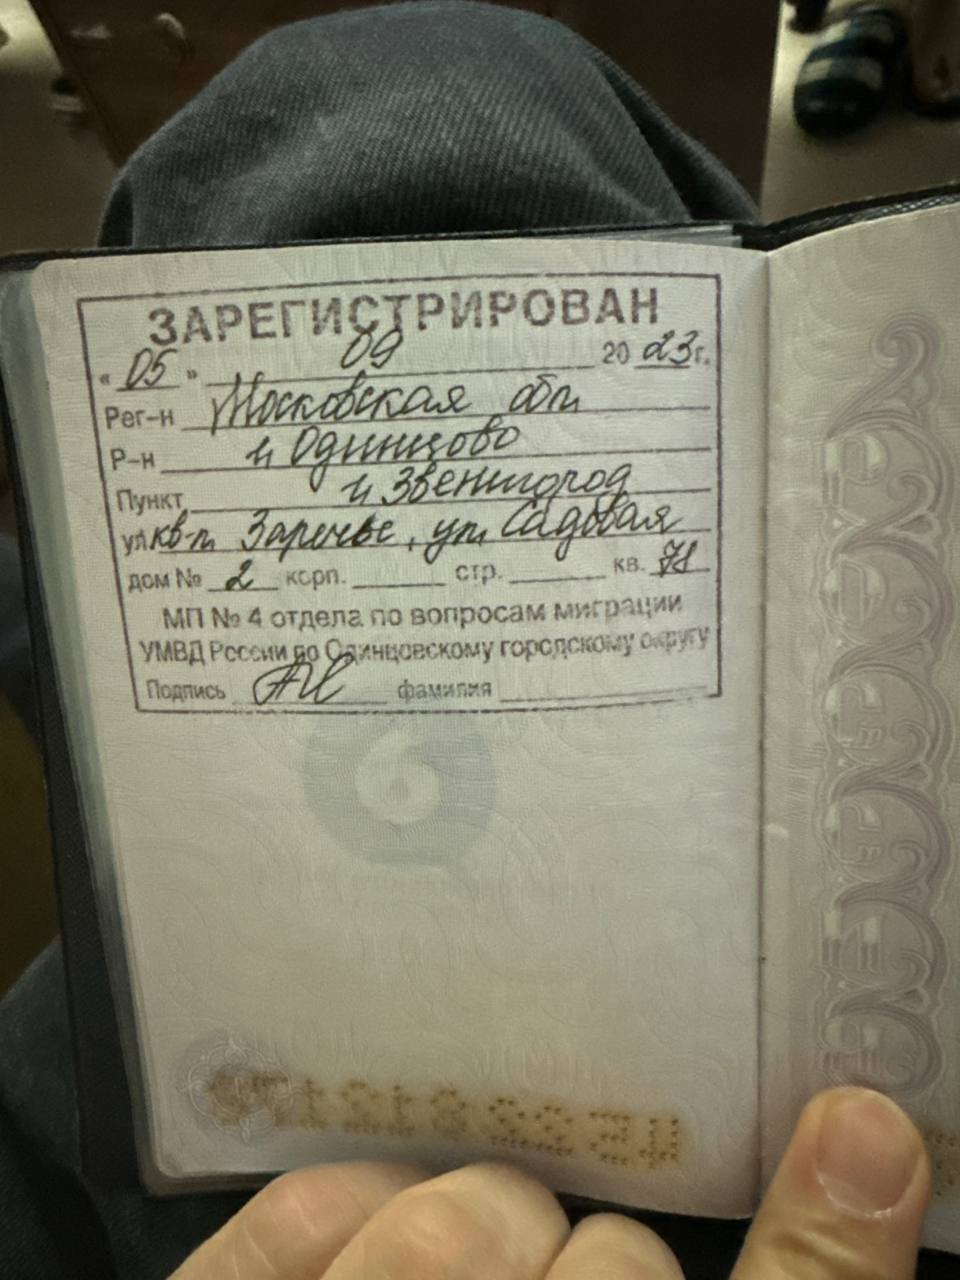 ЗАРЕГИСТРИРОВАН
« 05 » 09 20 23 г.
Рег-н Московская обл
Р-н г. Одинцово
Пункт г. Звенигород
ул кв-л Заречье, ул. Садовая
дом № 2 корп. стр. кв.
МП № 4 отдела по вопросам миграции
УМВД России по Одинцовскому городскому округу
Подпись фамилия
6